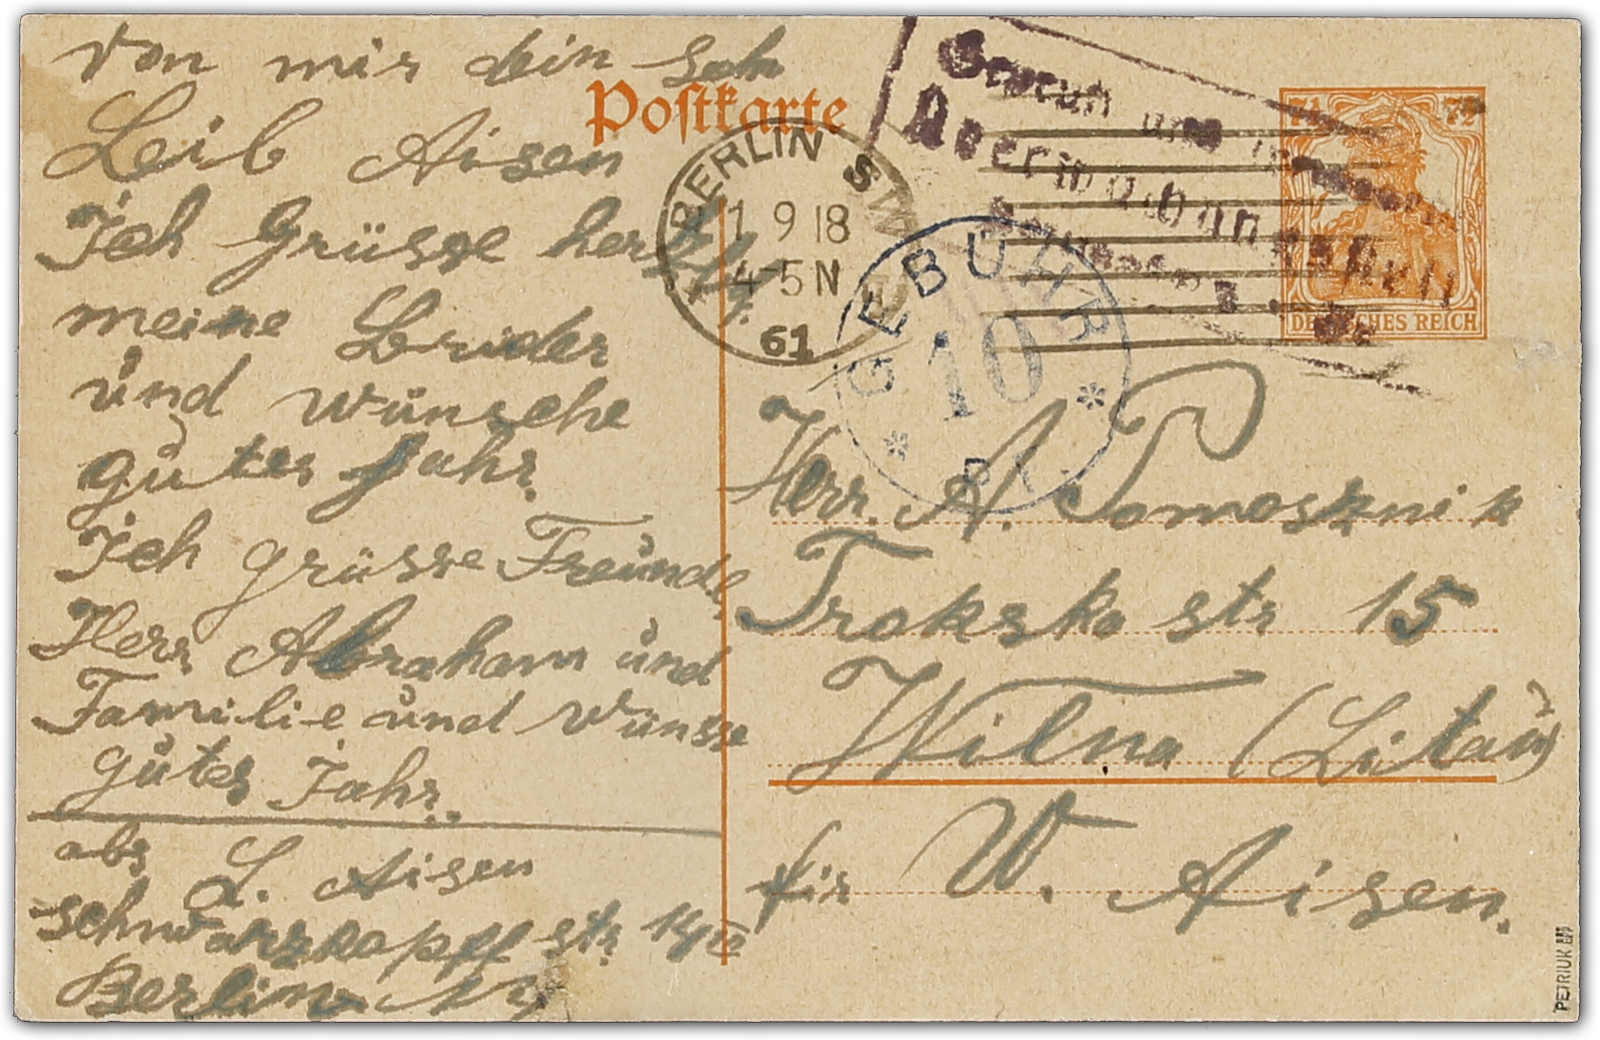 von mir dein Soh
Leib Aisen
Ich Grüsse herzlig
meine Bruder
und wünsche
gutes Jahr
Ich grüsse Freunde
Herr Abraham und
Familie und wünsse
gutes Jahr.
abs L. Aisen
schwarzkopff str
Berlin
Postkarte
BERLIN
1 9 18
4-5 N
61
GEBÜHR
10
Pf.
7½ 7½
DEUTSCHES REICH
Herr. A. Pomosknik
Trokska str 15
Wilna (Litau)
für W. Aisen.
PETRIUK